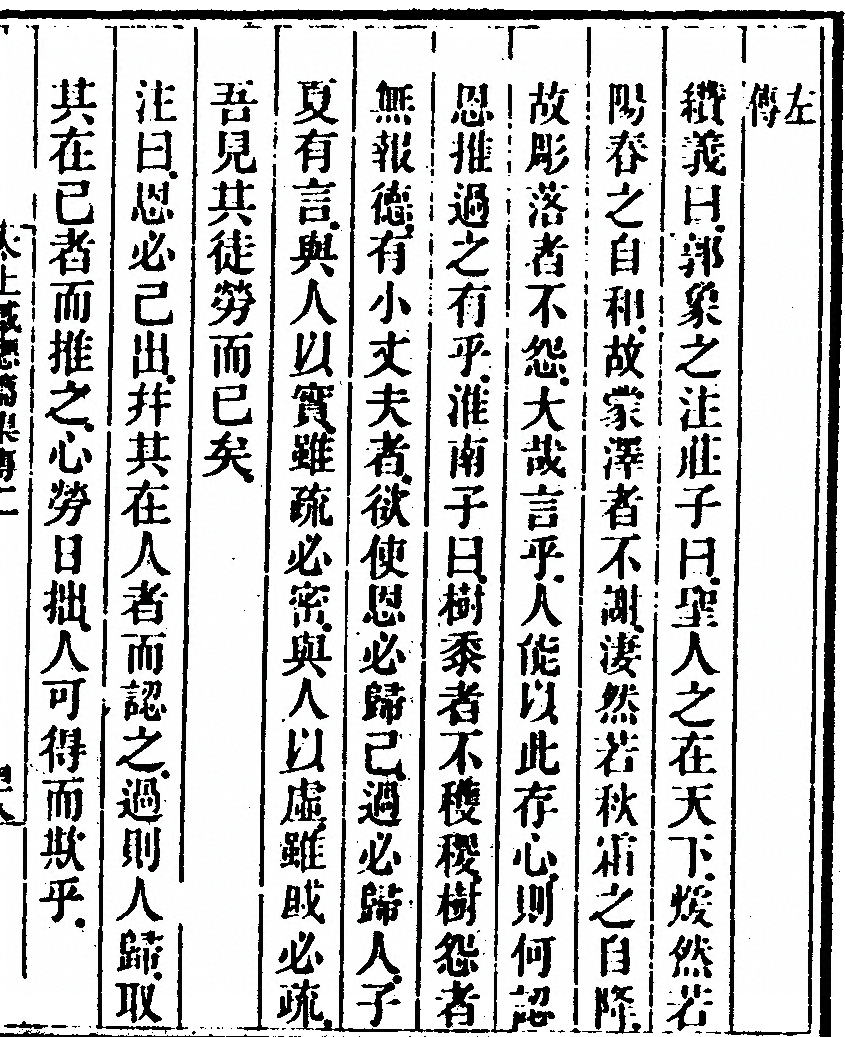 左傳
纘義曰郭象之注莊子曰聖人之在天下煖然若
陽春之自和故蒙澤者不謝淒然若秋霜之自降
故彫落者不怨大哉言乎人能以此存心則何認
恩推過之有乎淮南子曰樹黍者不穫稷樹怨者
無報德有小丈夫者欲使恩必歸己過必歸人子
夏有言與人以實雖疏必密與人以虛雖戚必疏
吾見其徒勞而已矣
注曰恩必己出幷其在人者而認之過則人歸取
其在已者而推之心勞日拙人可得而欺乎
太上感應篇集傳二